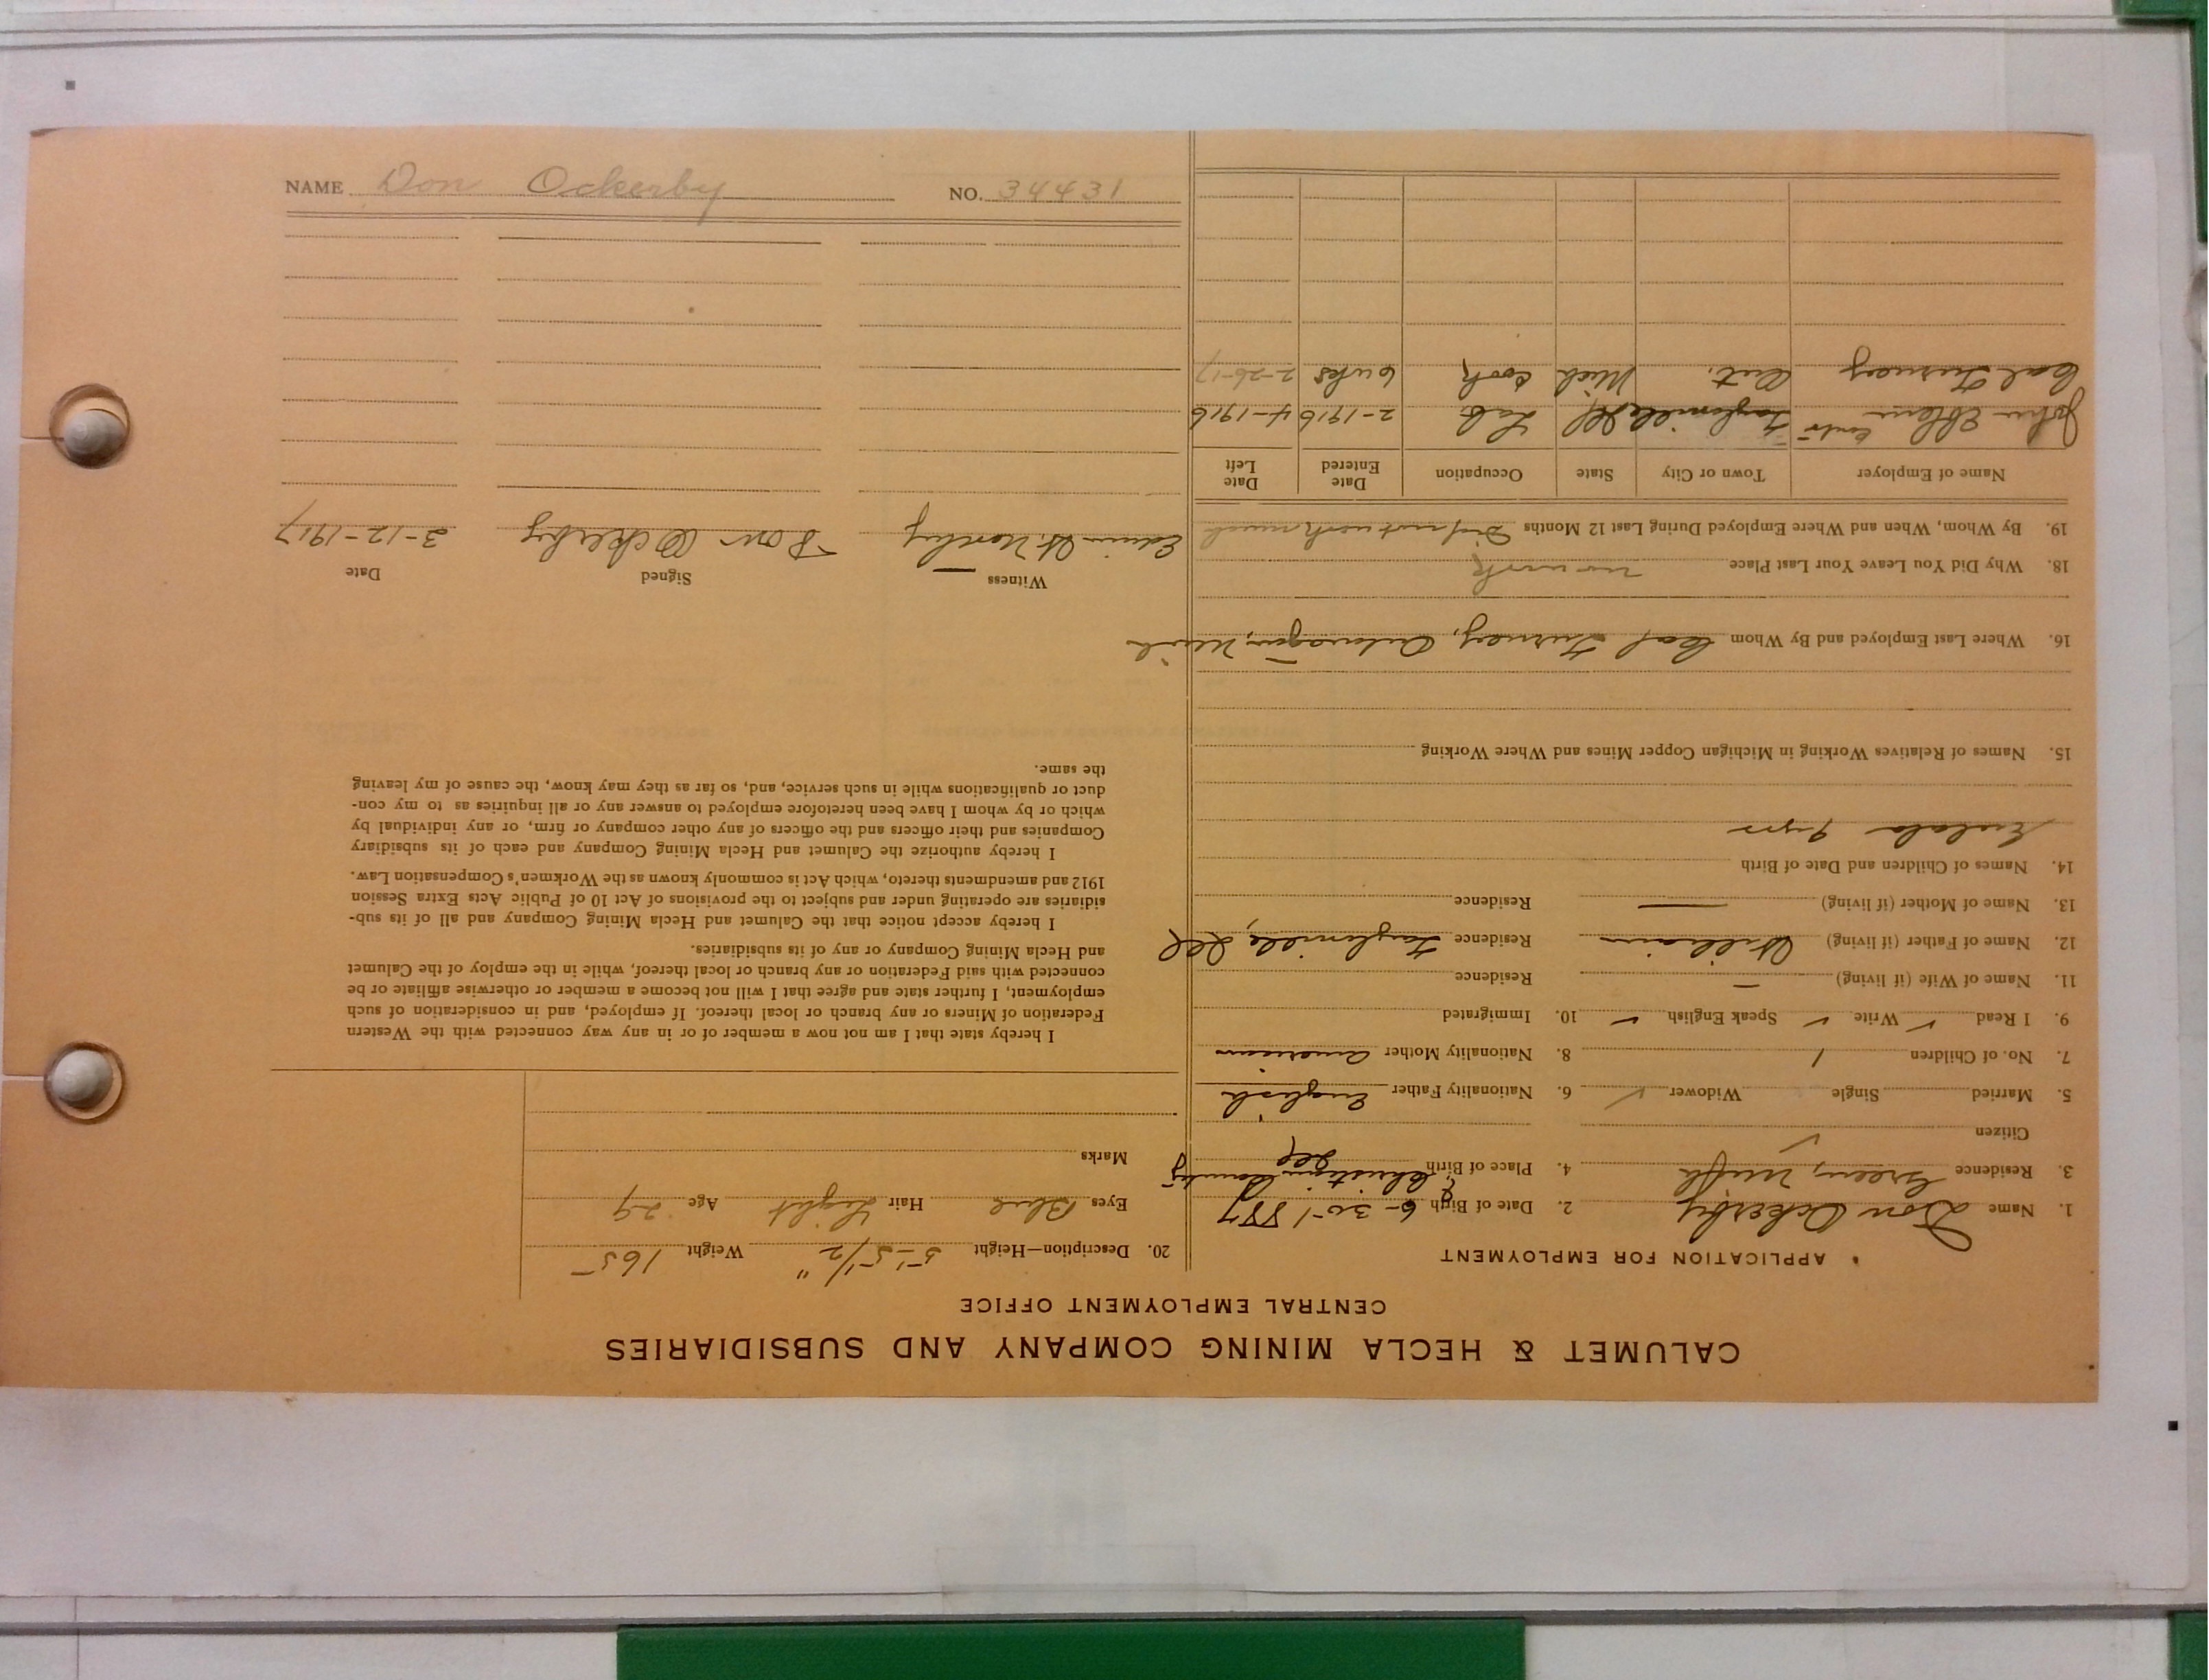 CALUMET & HECLA MINING COMPANY AND SUBSIDIARIES
CENTRAL EMPLOYMENT OFFICE
APPLICATION FOR EMPLOYMENT
1. Name Don Ockerby 2. Date of Birth 6-30-1887
3. Residence Green, Mich 4. Place of Birth Christian County
Ill
Citizen ✓
5. Married Single Widower ✓ 6. Nationality Father English
7. No. of Children 1 8. Nationality Mother American
9. I Read ✓ Write ✓ Speak English ✓ 10. Immigrated
11. Name of Wife (if living) — Residence
12. Name of Father (if living) William Residence Taylorville, Ill
13. Name of Mother (if living) — Residence
14. Names of Children and Date of Birth
9 yrs
15. Names of Relatives Working in Michigan Copper Mines and Where Working
16. Where Last Employed and By Whom Turney, Ontonagon, Mich
18. Why Did You Leave Your Last Place no work
19. By Whom, When and Where Employed During Last 12 Months Did not work much
Name of Employer Town or City State Occupation Date Entered Date Left
John Taylorville Ill Lab 2-1916 4-1916
Turney Ont. Mich Cook 6 wks 2-26-17
20. Description—Height 5'-5 1/2" Weight 165
Eyes Blue Hair Light Age 29
Marks
I hereby state that I am not now a member of or in any way connected with the Western
Federation of Miners or any branch or local thereof. If employed, and in consideration of such
employment, I further state and agree that I will not become a member or otherwise affiliate or be
connected with said Federation or any branch or local thereof, while in the employ of the Calumet
and Hecla Mining Company or any of its subsidiaries.
I hereby accept notice that the Calumet and Hecla Mining Company and all of its sub-
sidiaries are operating under and subject to the provisions of Act 10 of Public Acts Extra Session
1912 and amendments thereto, which Act is commonly known as the Workmen's Compensation Law.
I hereby authorize the Calumet and Hecla Mining Company and each of its subsidiary
Companies and their officers and the officers of any other company or firm, or any individual by
which or by whom I have been heretofore employed to answer any or all inquiries as to my con-
duct or qualifications while in such service, and, so far as they may know, the cause of my leaving
the same.
Witness Signed Date
Edwin Don Ockerby 3-12-1917
NAME Don Ockerby NO. 34431